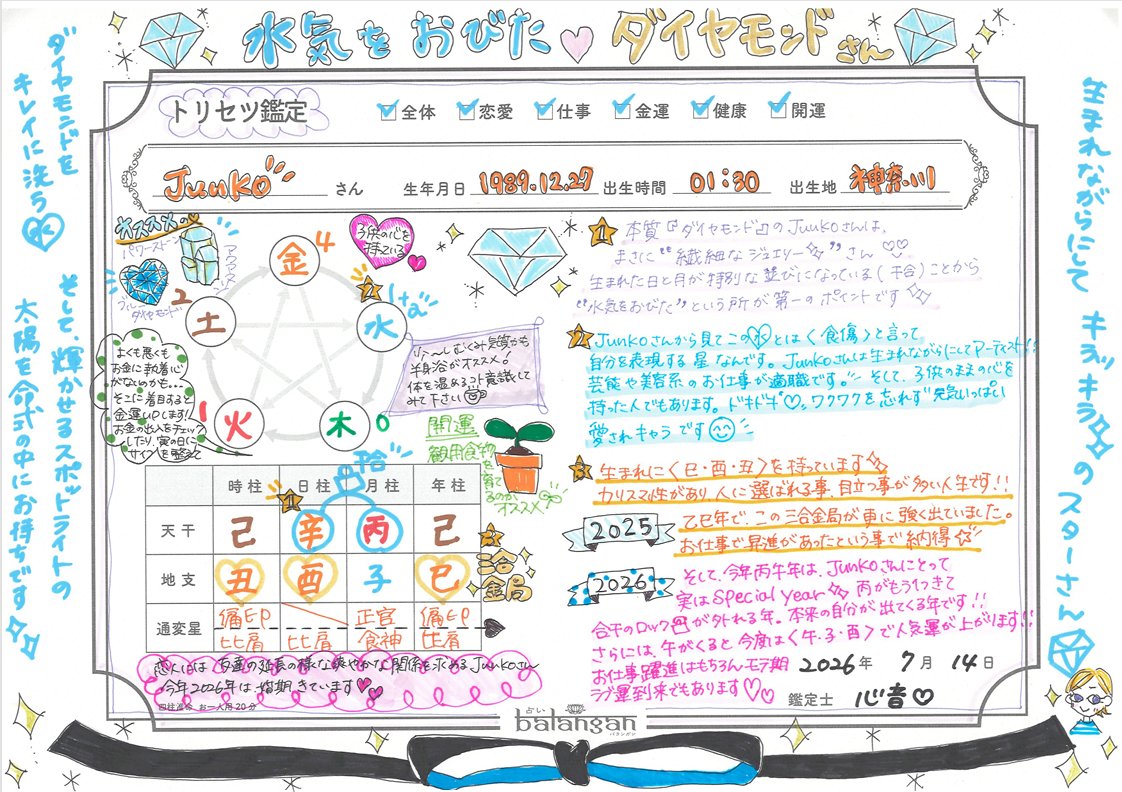 水気をおびた♡ダイヤモンドさん
ダイヤモンドを
キレイに洗う水
そして、輝かせるスポットライトの
太陽を命式の中にお持ちです
生まれながらにして キラッキラのスターさん
トリセツ鑑定
全体 恋愛 仕事 金運 健康 開運
Junko さん 生年月日 1989.12.27 出生時間 01:30 出生地 神奈川
オススメの
パワーストーン
アクアマリン
ダイヤモンド
子供の心を
持っている
金 4
水
土 2
火 1
木 0
よくも悪くも
お金に執着心
がないかも…
そこに着目すると
金運UPします!
お金の出入をチェック
したり、実の日に
サイフを整えて
冷え〜しむくみ気質かも
半身浴がオススメ!
体を温めるコト意識して
みて下さい
開運
観用食物
を育て
るのが
オススメ!
干合
時柱 日柱 月柱 年柱
天干 己 辛 丙 己
地支 丑 酉 子 巳
通変星 偏印 正官 偏印
比肩 比肩 食神 比肩
3
三合
金局
恋人には〈友達の延長の様な爽やかな関係を求めるJunkoさん
今年2026年は婚期きています♡♡
四柱推命 お一人用20分
1 本質『ダイヤモンド』のJunkoさんは、
まさに“繊細なジュエリー”さん♡♡
生まれた日と月が特別な並びになっている(干合)ことから
“水気をおびた”という所が第一のポイントです
2 Junkoさんから見てこの水とは〈食傷〉と言って
自分を表現する星なんです。Junkoさんは生まれながらにしてアーティスト!!
芸能や美容系のお仕事が適職です。そして、子供のままの心を
持った人でもあります。ドキドキ♡、ワクワクを忘れず“元気いっぱい
愛されキャラ”です
3 生まれに〈巳・酉・丑〉を持っています
カリスマ性があり人に選ばれる事、目立つ事が多い人生です!!
2025 乙巳年で、この三合金局が更に強く出ていました。
お仕事で昇進があったという事で納得☆
2026 そして、今年丙午年は、Junkoさんにとって
実はSpecial year 丙がもう1つきて
合干のロックが外れる年。本来の自分が出てくる年です!!
さらには、午がくると今度は〈午・子・酉〉で人気運が上がります!!
お仕事躍進はもちろんモテ期
ラブ運到来でもあります♡♡
2026年 7月 14日
鑑定士 心音♡
占い
balangan
バランガン